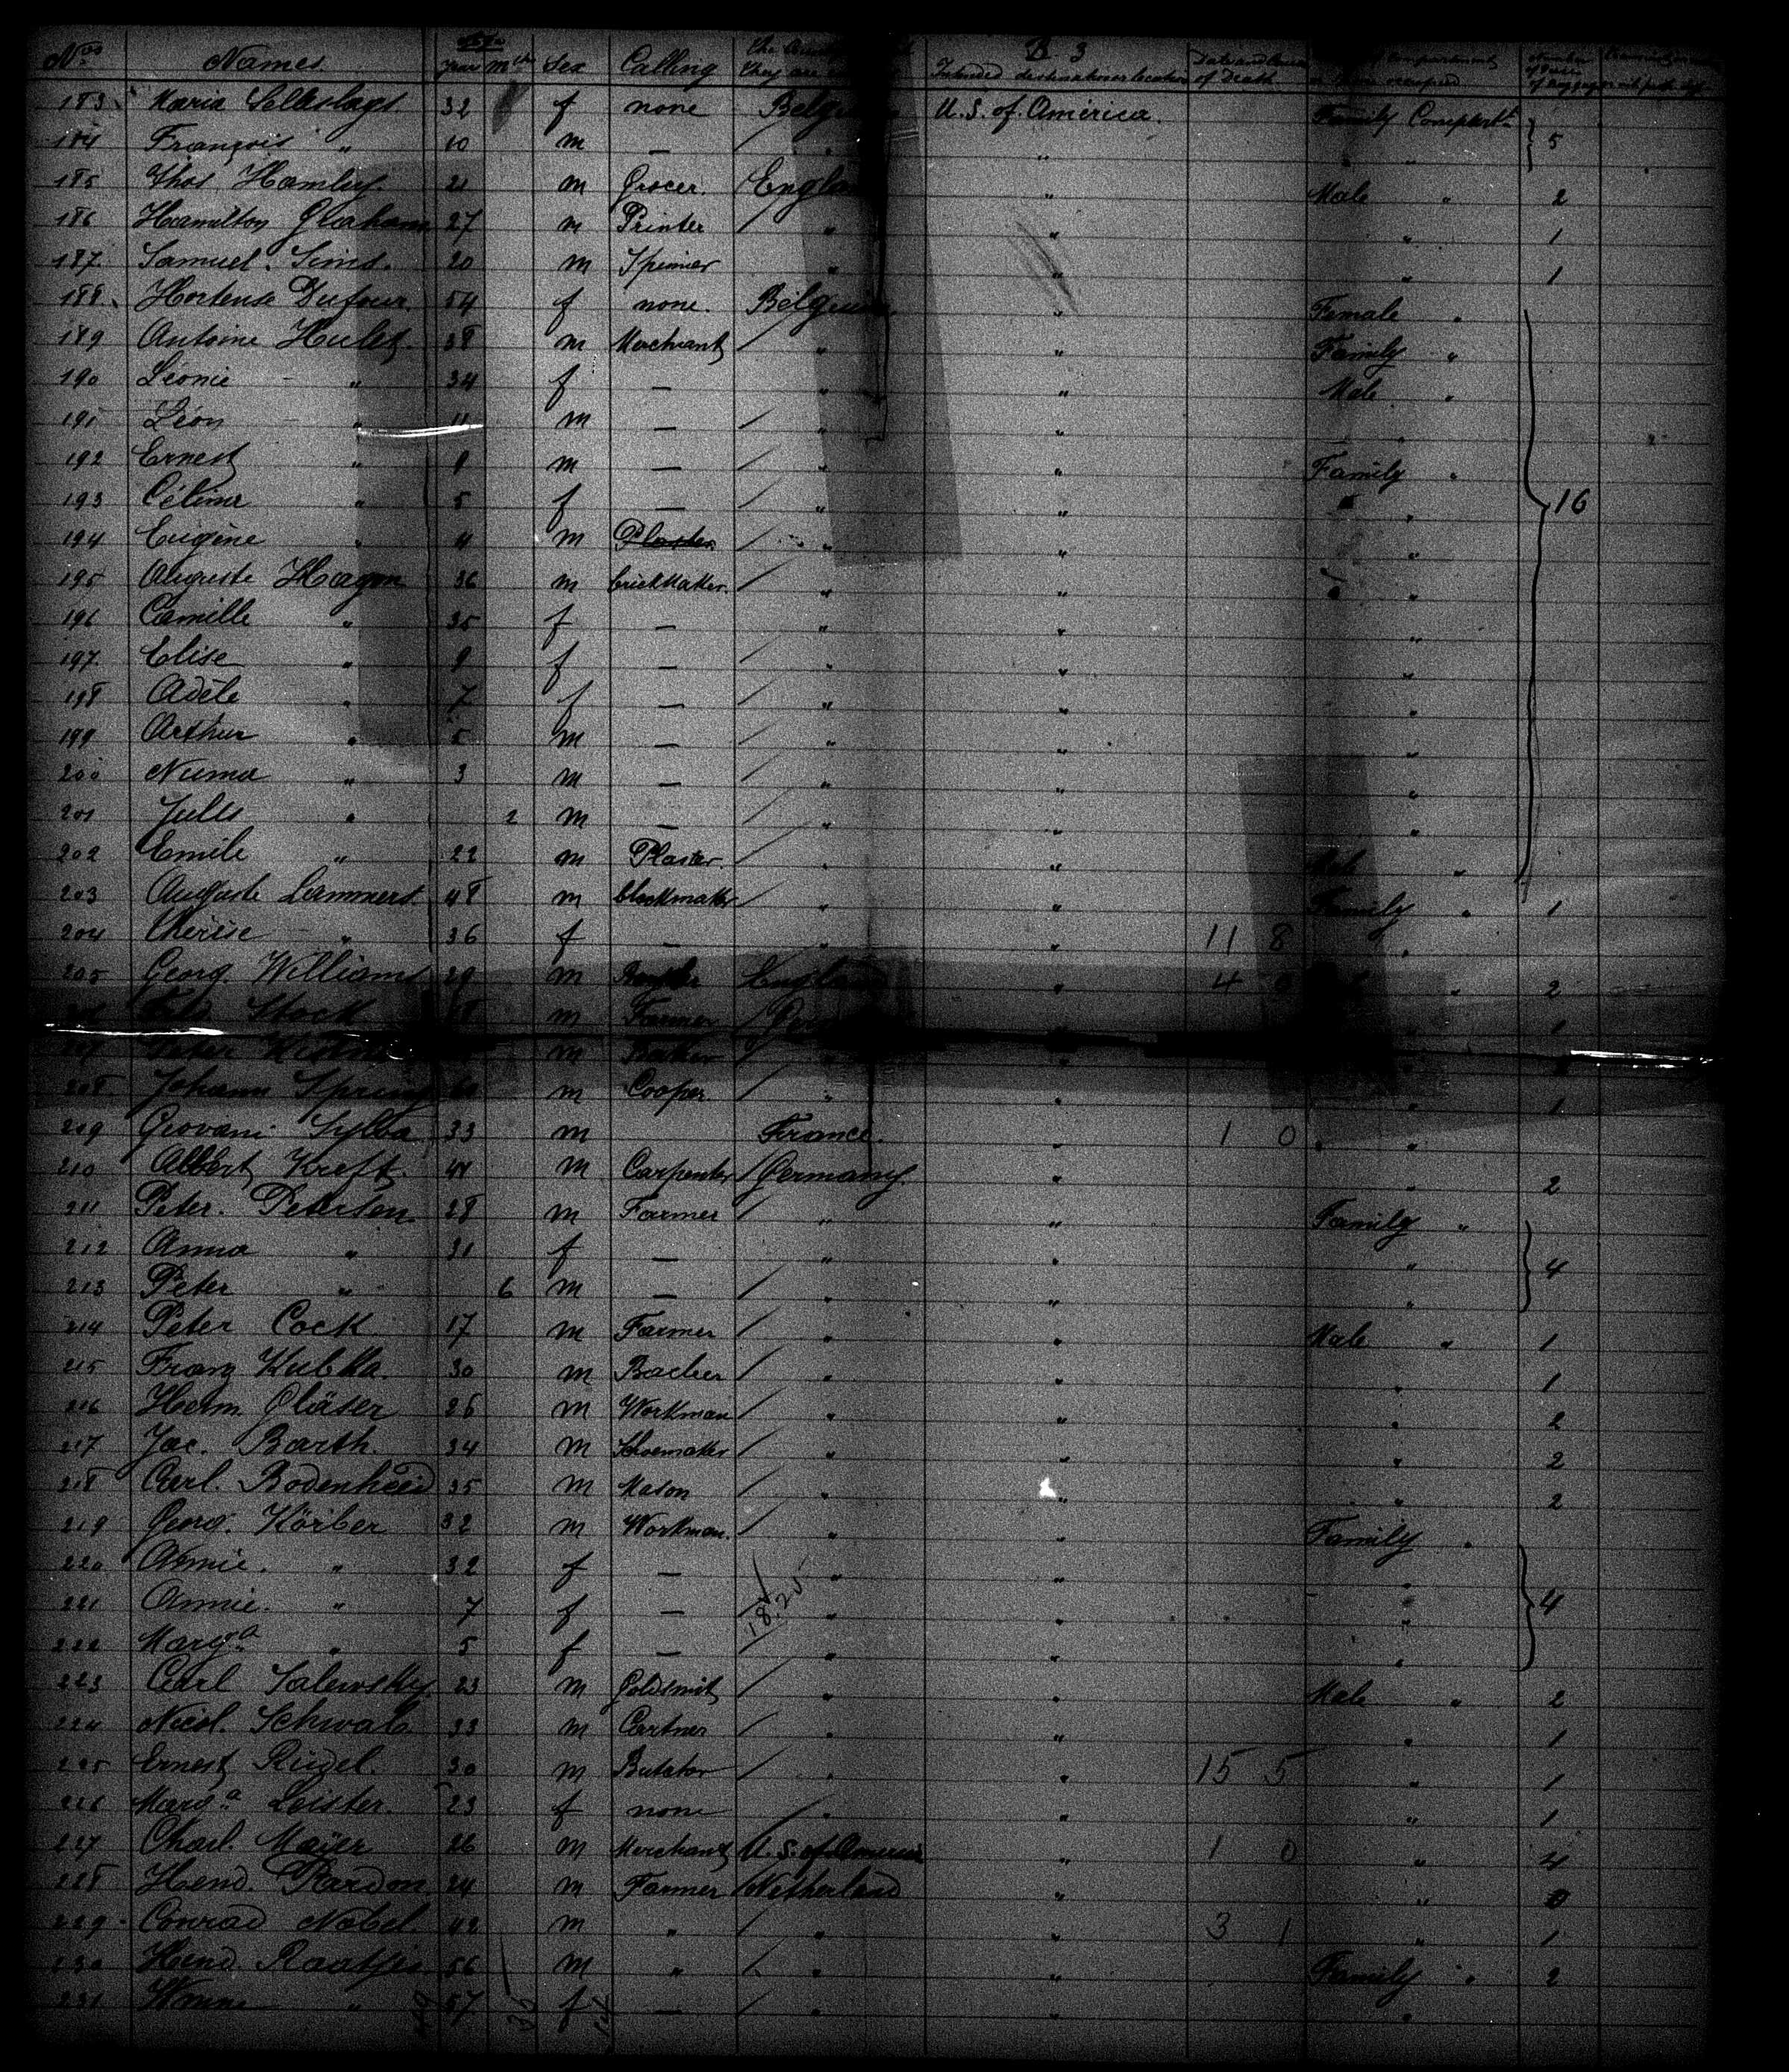 B. 3
Nos Names Age Years Mths Sex Calling the Country they are Intended destination or location Date and Cause of Death compartment occupied Number of Pieces of Baggage
183 Maria Selleslags 32 f none Belgium U.S. of America. Family Compartt
184 François " 10 m — " " " 5
185 Thos Hamley. 21 m Grocer. England " Male " 2
186 Hamilton Graham 27 m Printer " " " 1
187. Samuel Sims. 20 m Spinner " " " 1
188 Hortense Dufour. 54 f none. Belgium " Female "
189 Antoine Hulet. 38 m Merchant " " Family "
190 Léonie " 34 f — " " Male "
191 Léon " 11 m — " " "
192 Ernest " 9 m — " " Family "
193 Célima " 5 f — " " " 16
194 Eugène " 4 m Plaster " " "
195 Auguste Hagon 36 m brickMaker. " " "
196 Camille " 35 f — " " "
197. Elise " 9 f — " " "
198 Adèle " 7 f — " " "
199 Arthur " 5 m — " " "
200 Numa " 3 m — " " "
201 Jules " 2 m — " " "
202 Emile " 22 m Plaster. " " Male "
203 Auguste Lammers 48 m clockmaker " " Family " 1
204 Thérèse " 36 f — " " 11 8 "
205 Georg. Williams 29 m England " 4 0 " 2
Stock m Farmer " " 1
Peter m Baker " " "
208. Johann m Cooper " " " 1
209 Giovani Sylva 33 m France. " 1 0 " "
210 Albert Kreft. 44 m Carpenter Germany. " " 2
211 Peter. Petersen 28 m Farmer " " Family "
212 Anna " 31 f — " " " 4
213 Peter " 6 m — " " "
214 Peter Cock 17 m Farmer " " Male " 1
215 Franz Kubka. 30 m " " " 1
216 Herm. Gläser 26 m Workman " " " 2
217 Jac. Barth. 34 m Shoemaker " " " 2
218 Carl. Bodenheid 35 m Mason " " " 2
219 Georg. Körber 32 m Workman. " " Family "
220 Annie. " 32 f — " " "
221 Annie. " 7 f — " " " 4
222 Marga " 5 f — " " "
223 Carl Salewsky 23 m Goldsmit " " Male " 2
224 Nicol. Schwab 33 m Gartner " " " 1
225 Ernest Riedel. 30 m " " 15 5 " 1
226 Marga Leister. 23 f none " " " 1
227 Charl. Mayer 26 m Merchant U.S. of America " 1 0 " 4
228 Hend. Pardon 24 m Farmer Netherland " "
229 Conrad Nobel 42 m " " " 3 1 " 1
230 Hend. Raatjes 56 m " " " Family " 2
231 " 57 f — " " "